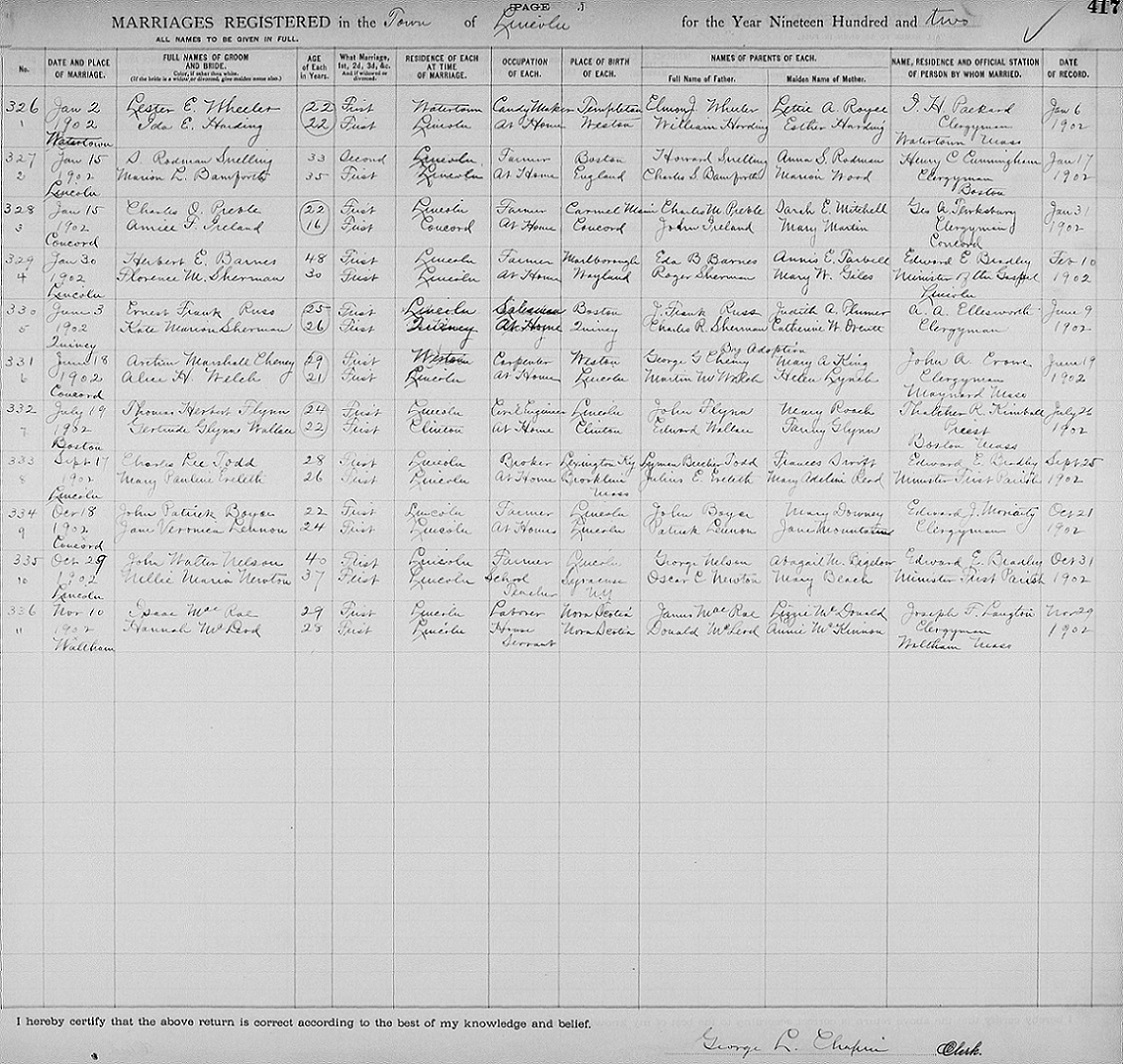 PAGE
417
MARRIAGES REGISTERED in the Town of Lincoln for the Year Nineteen Hundred and two
ALL NAMES TO BE GIVEN IN FULL.
No. DATE AND PLACE OF MARRIAGE. FULL NAMES OF GROOM AND BRIDE. Color, if other than white. (If the bride is a widow or divorced, give maiden name also.) AGE of Each in Years. What Marriage, 1st, 2d, 3d, &c. And if widowed or divorced. RESIDENCE OF EACH AT TIME OF MARRIAGE. OCCUPATION OF EACH. PLACE OF BIRTH OF EACH. NAMES OF PARENTS OF EACH. Full Name of Father. Maiden Name of Mother. NAME, RESIDENCE AND OFFICIAL STATION OF PERSON BY WHOM MARRIED. DATE OF RECORD.
326 Jan 2 Lester E. Wheeler 22 First Watertown Candy Maker Templeton Elmon J. Wheeler Lettie A. Royce I. H. Packard Jan 6
1 1902 Ida E. Harding 22 First Lincoln At Home Weston William Harding Esther Harding Clergyman 1902
Watertown Watertown Mass
327 Jan 15 S. Rodman Snelling 33 Second Lincoln Farmer Boston Howard Snelling Anna S. Rodman Henry C Cunningham Jan 17
2 1902 Marion L. Bamforth 35 First Lincoln At Home England Charles S Bamforth Marion Wood Clergyman 1902
Lincoln Boston
328 Jan 15 Charles O. Preble 22 First Lincoln Farmer Carmel Charles M. Preble Sarah E. Mitchell Geo A. Tewksbury Jan 31
3 1902 F. Ireland 16 First Concord At Home Concord John Ireland Mary Martin Clergyman 1902
Concord Concord
329 Jan 30 Herbert E. Barnes 48 First Lincoln Farmer Marlborough B Barnes Annie E. Tarbell Edward E Bradley Feb 10
4 1902 Florence M. Sherman 30 First Lincoln At Home Wayland Roger Sherman Mary W. Giles Minister of the Gospel 1902
Lincoln Lincoln
330 June 3 Ernest Frank Russ 25 First Lincoln Salesman Boston J. Frank Russ Judith A. Plumer A. A. Ellesworth June 9
5 1902 Kate Marion Sherman 26 First Quincy At Home Quincy Charles R. Sherman Catherine W. Clergyman 1902
Quincy By Adoption
331 June 18 Arthur Marshall Cheney 29 First Weston Carpenter Weston George G Cheney Mary A King John A. Crowe June 19
6 1902 Alice H. Welch 21 First Lincoln At Home Lincoln Martin Helen Lynch Clergyman 1902
Concord Maynard Mass
332 July 19 Thomas Herbert Flynn 24 First Lincoln Civil Engineer Lincoln John Flynn Mary Roach Thatcher R. Kimball July 26
7 1902 Gertrude Glynn Wallace 22 First Clinton At Home Clinton Edward Wallace Fanny Glynn Priest 1902
Boston Boston Mass
333 Sept 17 Charles Lee Todd 28 First Lincoln Broker Lexington Ky Lyman Beecher Todd Frances Swift Edward E. Bradley Sept 25
8 1902 Mary Pauline Eveleth 26 First Lincoln At Home Brookline Julius E. Eveleth Mary Adeline Reed Minister First Parish 1902
Lincoln Mass
334 Oct 18 John Patrick Boyce 22 First Lincoln Farmer Lincoln John Boyce Mary Downey Edward J. Moriarty Oct 21
9 1902 Jane Veronica Lennon 24 First Lincoln At Home Lincoln Patrick Lennon Jane Clergyman 1902
Concord
335 Oct 29 John Walter Nelson 40 First Lincoln Farmer Lincoln George Nelson Abagail M. Bigelow Edward E. Bradley Oct 31
10 1902 Nellie Maria Newton 37 First Lincoln School Syracuse Oscar C. Newton Mary Beach Minister First Parish 1902
Lincoln Teacher NY
336 Nov 10 Isaac MacRae 29 First Lincoln Laborer Nova Scotia James MacRae Lizzie McDonald Joseph F. Langton Nov 29
11 1902 Hannah McLeod 28 First Lincoln House Nova Scotia Donald McLeod Annie McKinnon Clergyman 1902
Waltham Servant Waltham Mass
I hereby certify that the above return is correct according to the best of my knowledge and belief.
George L. Chapin Clerk.